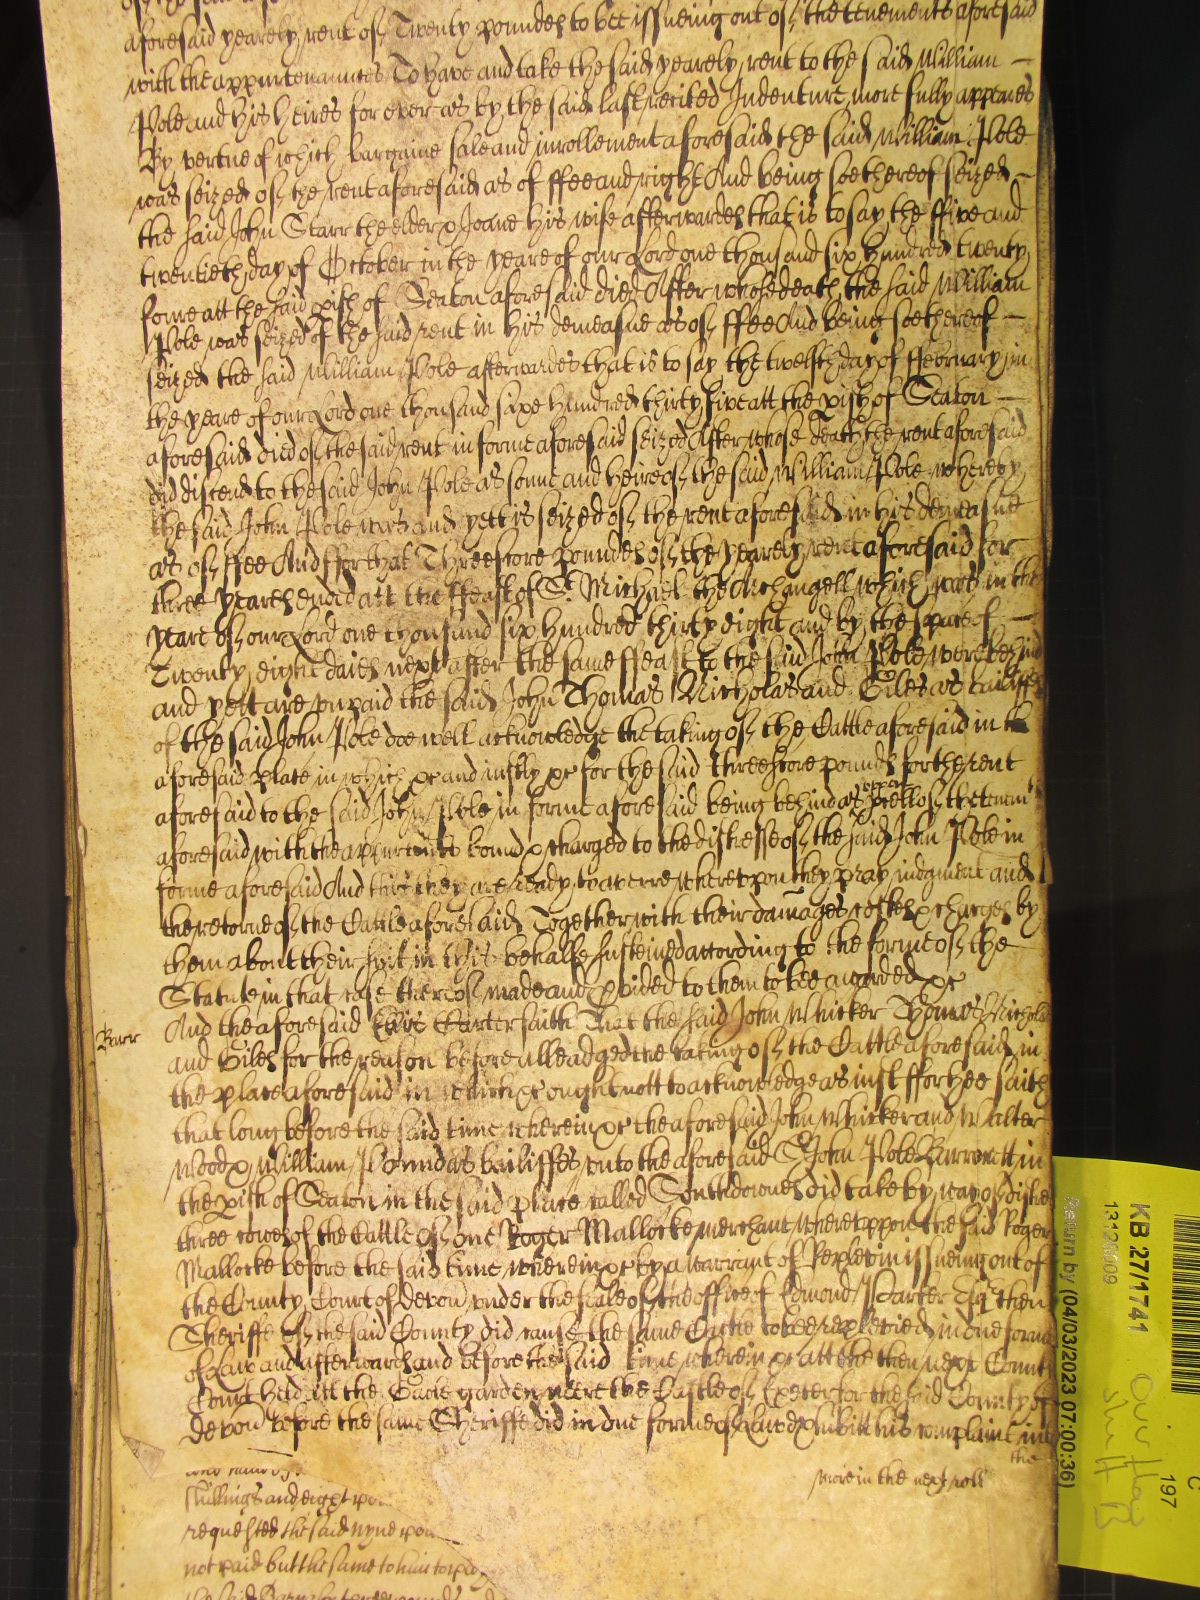 aforesaid yearely rent of Twenty poundes to bee issueing out of the tenements aforesaid
with the appurtenaunces To have and take the said yearely rent to the said William
Pole and his heires for ever as by the said last recited Indenture more fully appeares
By vertue of which bargaine sale and inrollement aforesaid the said William Pole
was seized of the rent aforesaid as of ffee and right And being soe thereof seized
the said John Starr the elder & Joane his wife afterwardes that is to say the ffive and
twentieth day of October in the yeare of our Lord one thousand six hundred twenty
foure att the said pish of Seaton aforesaid died After whose death the said William
Pole was seized of the said rent in his demeasne as of ffee And being soe thereof
seized the said William Pole afterwardes that is to say the twelfth day of ffebruary in
the yeare of our Lord one thousand sixe hundred thirty five att the pish of Seaton
aforesaid died of the said rent in forme aforesaid seized After whose death the rent aforesaid
did discend to the said John Pole as sonne and heire of the said William Pole whereby
the said John Pole was and yett is seized of the rent aforesaid in his demeasne
as of ffee And ffor that Threescore poundes of the yearely rent aforesaid for
three yeares ended att the ffeast of St Michael the Archangell which was in the
yeare of our Lord one thousand six hundred thirty eight and by the space of
Twenty eight daies next after the same ffeast to the said John Pole were behind
and yett are unpaid the said John Thomas Nicholas and Giles as bailiffes
of the said John Pole doe well acknowledge the taking of the Cattle aforesaid in the
aforesaid place in which &c and iustly &c for the said threescore poundes for the rent
aforesaid to the said John Pole in forme aforesaid being behind as pcell of the tenemts
aforesaid with the appurtenncs bound & charged to the distresse of the said John Pole in
forme aforesaid And this they are ready to averre whereupon they pray iudgment and
the retorne of the Cattle aforesaid Together with their damages costes & charges by
them about their suit in this behalfe susteined according to the forme of the
Statute in that case thereof made and pvided to them to bee awarded &c
Barr
And the aforesaid Carter saith That the said John Whicker Thomas Nicholas
and Giles for the reason before alleadged the taking of the Cattle aforesaid in
the place aforesaid in which &c ought nott to acknowledge as iust ffor hee saith
that long before the said time wherein &c the aforesaid John Whicker and Walter
Wood & William Pound as bailiffes unto the aforesaid Sr John Pole Barronett in
the pish of Seaton in the said place called Southdownes did take by way of distres
three cowes of the Cattle of one Roger Mallocke merchant whereuppon the said Roger
Mallocke before the said time wherein &c by a warrant of Replevin issueing out of
the County Court of Devon under the seale of the office of Edmond Parker Esqr then
Sheriffe of the said County did cause the same Cattle to bee replevied in due forme
of Law and afterwardes and before the said time wherein &c att the then next County
Court held att the Gaole garden neere the Castle of Exeter for the said County of
Devon before the same Sheriffe did in due forme of Law exhibitt his complaint into
the
more in the next roll
shillings and eight
requested the said nyne
not paid but the same to him to pay
KB 27/1741
13128009
Return by (04/03/2023 07:00:36)
C
197